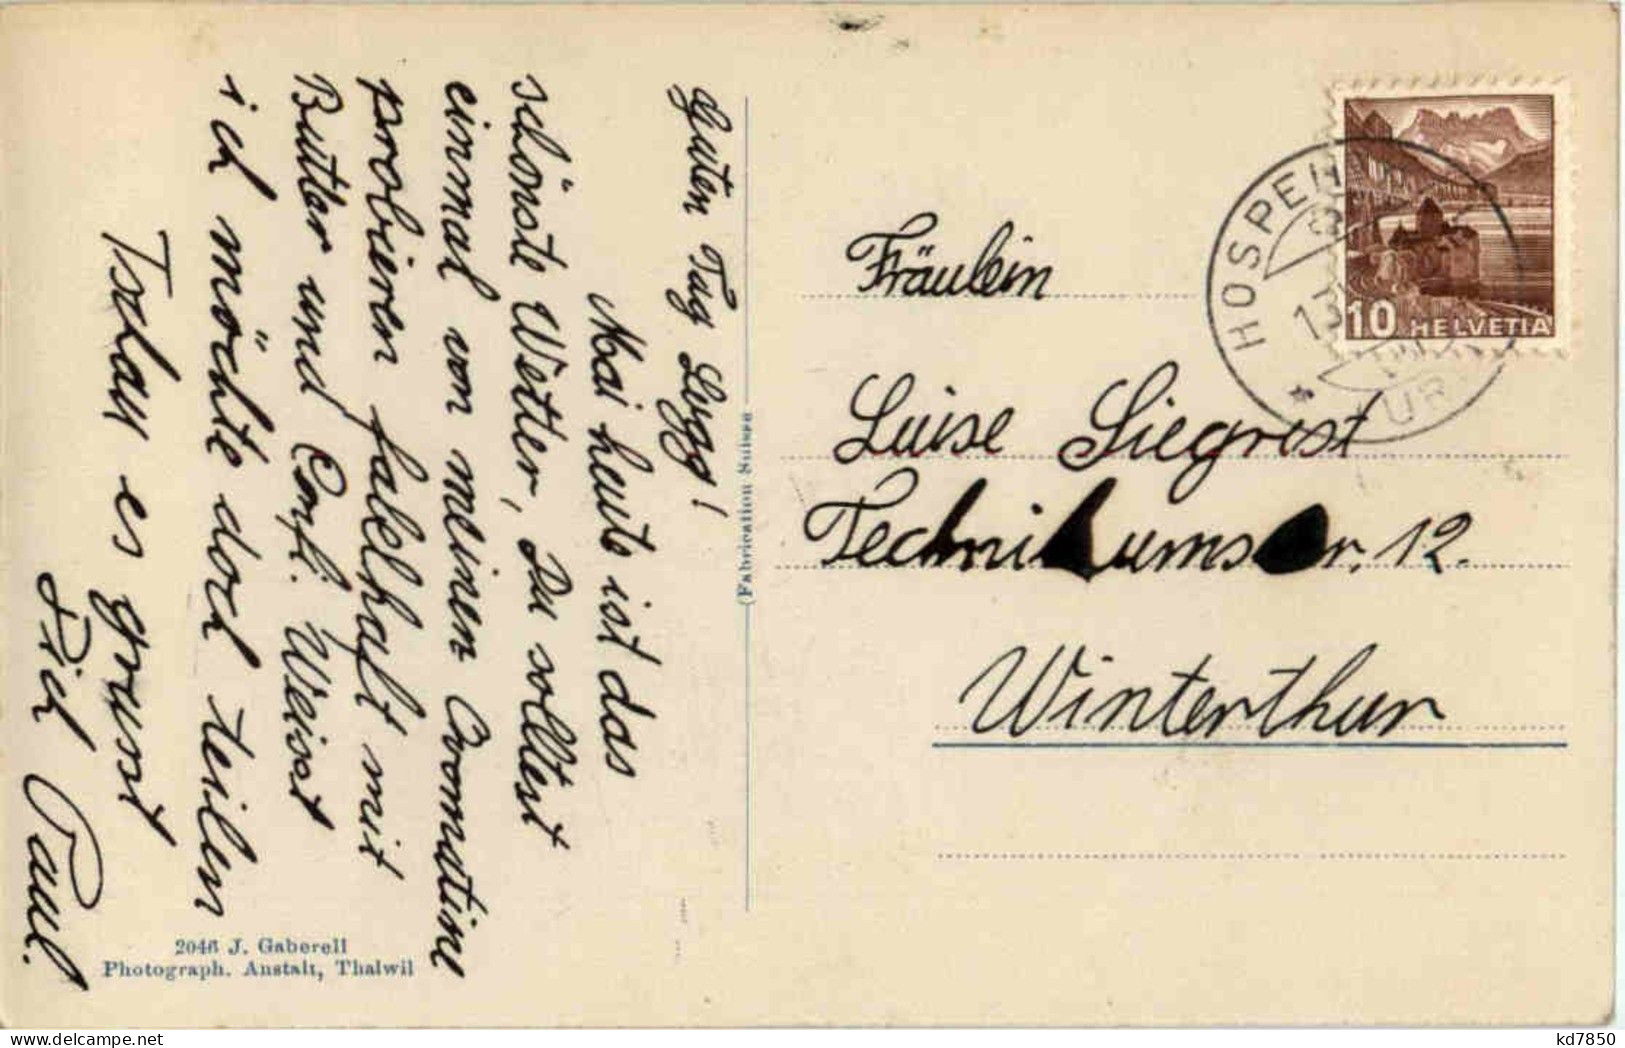 Guten Tag Lugg!
Mai heute ist das
schönste Wetter, Du solltest
einmal von meinen
probieren fabelhaft mit
Butter und Confi. Weisst
ich möchte doch teilen
Tschau es grüsst
Dich Paul.
2046 J. Gaberell
Photograph. Anstalt, Thalwil
(Fabrication Suisse)
HOSPE
URI
10 HELVETIA
Fräulein
Luise Siegrist
Technikumstr. 12.
Winterthur
kd7850